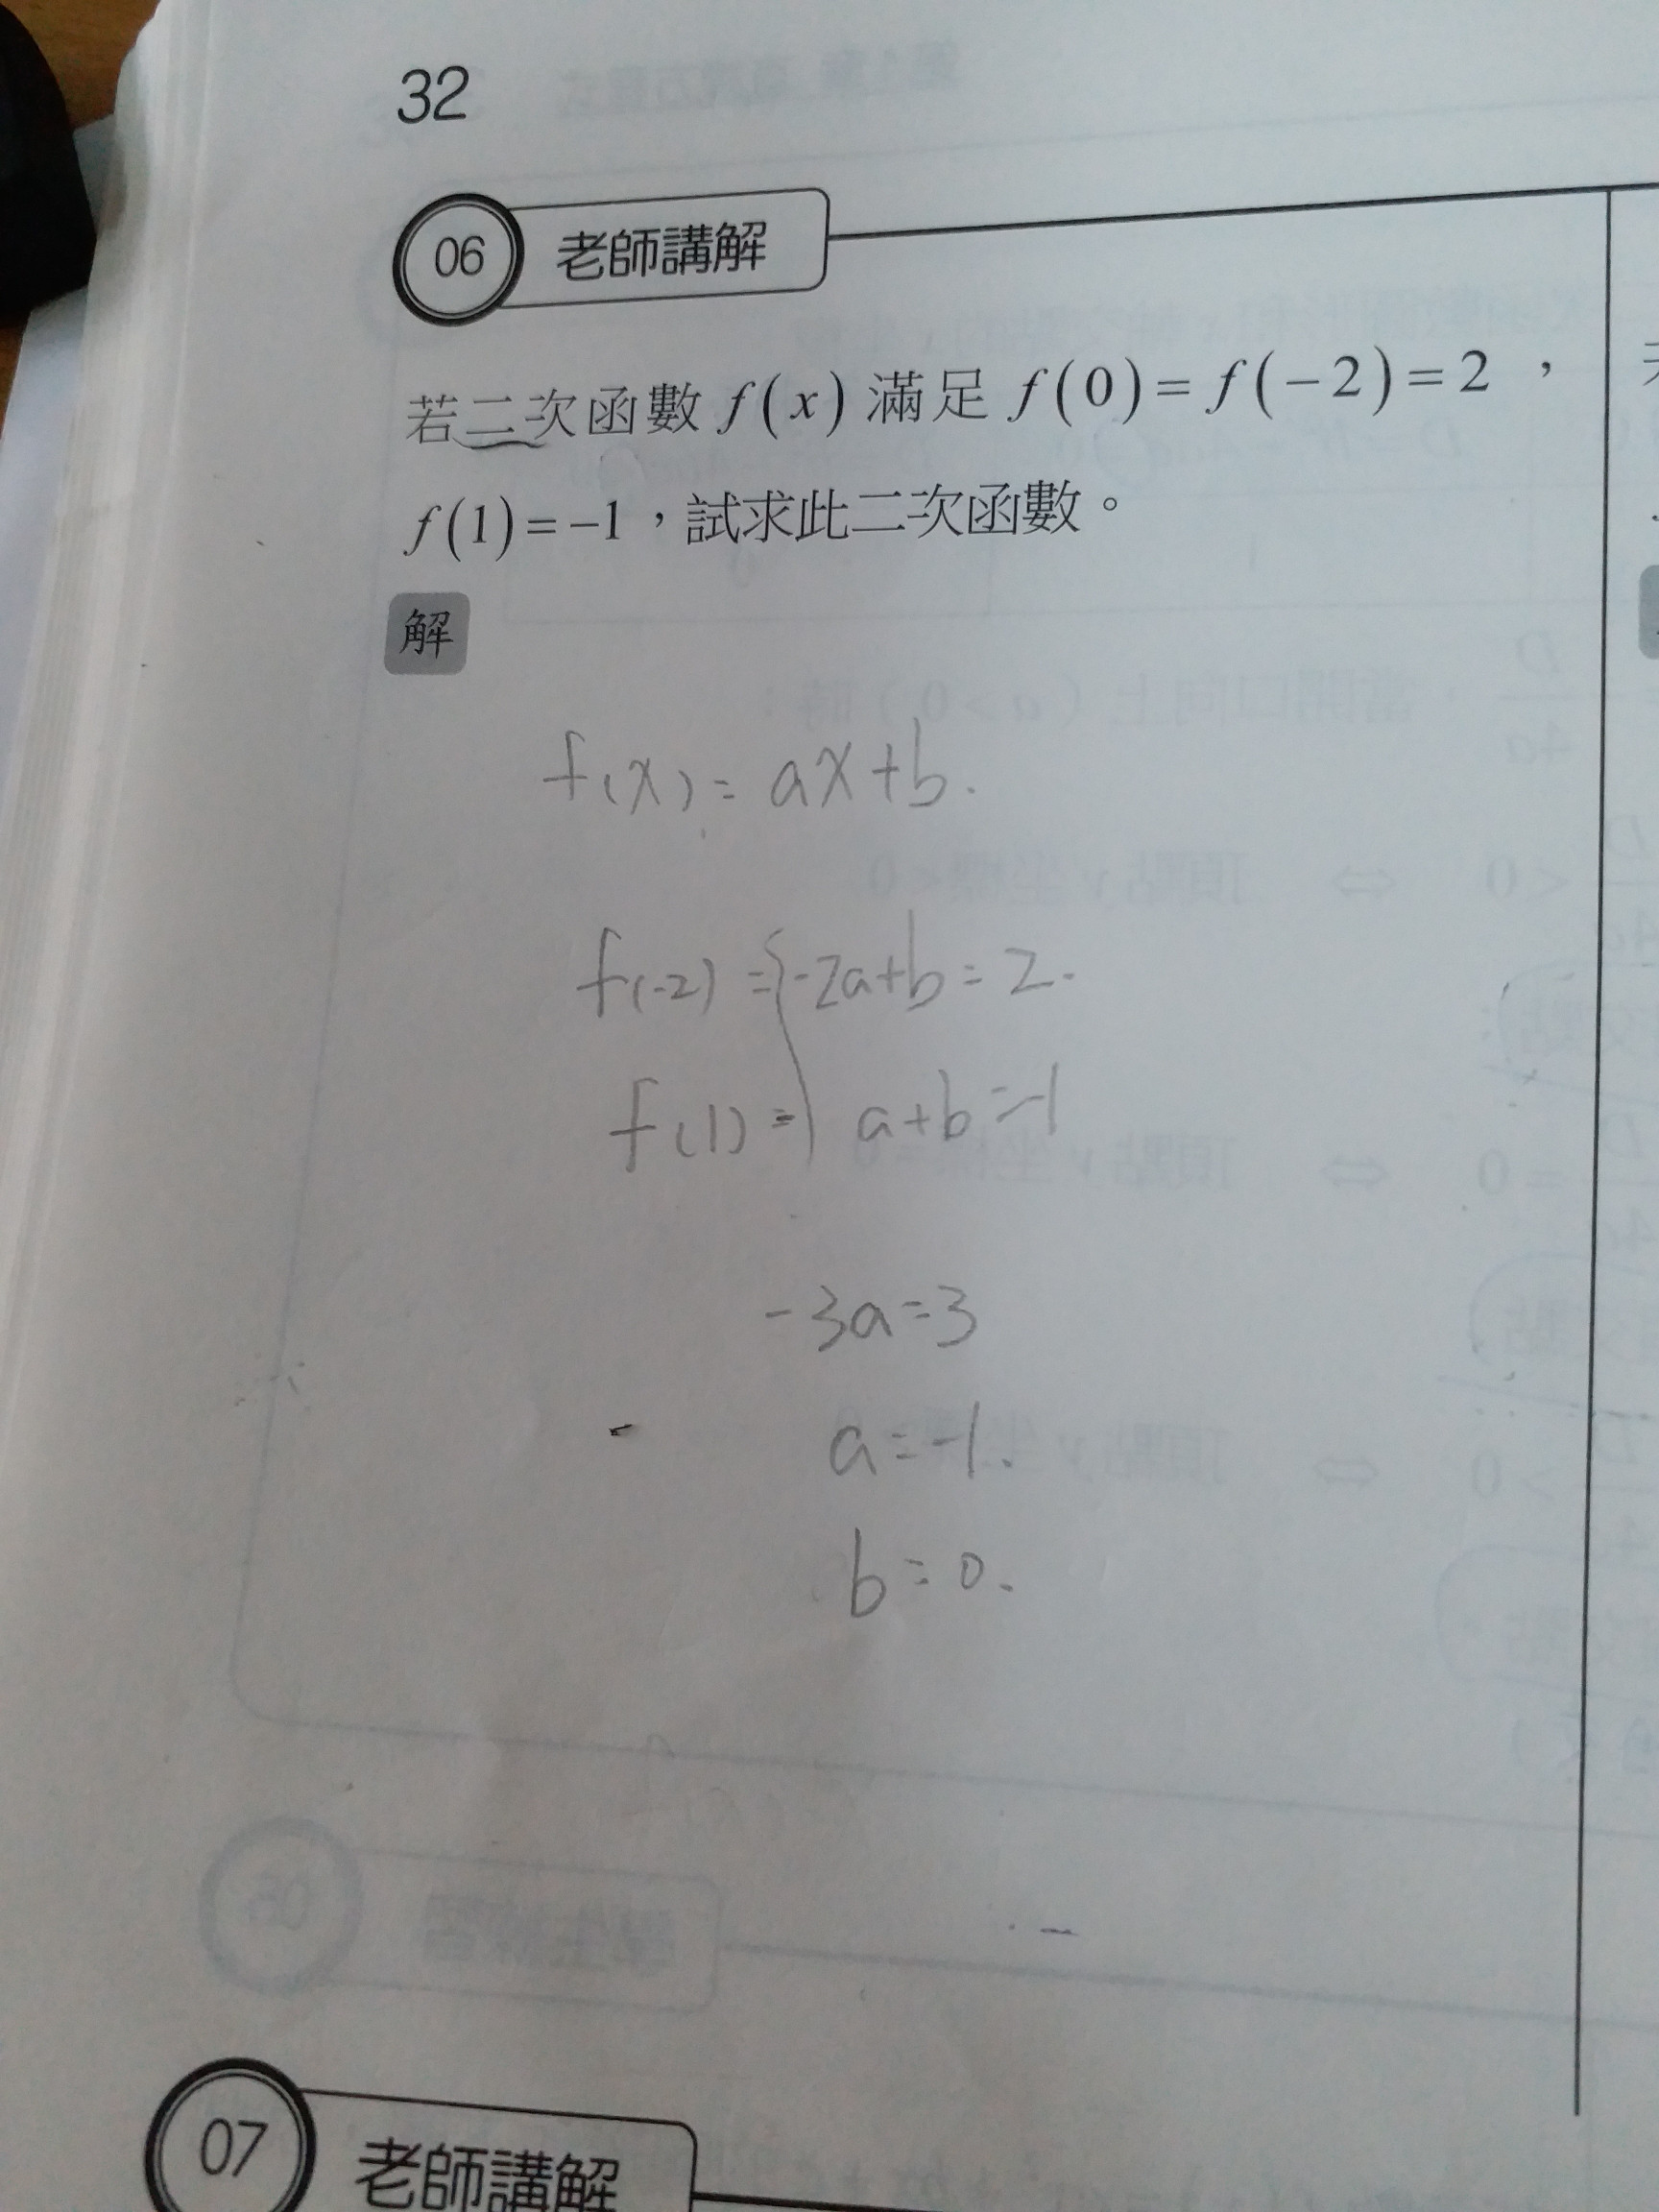 32
06 老師講解
若二次函數 f(x) 滿足 f(0)=f(-2)=2，
f(1)=-1，試求此二次函數。
解
f(x)=ax+b.
f(-2)={-2a+b=2.
f(1)= a+b=-1
-3a=3
a=-1.
b=0.
07 老師講解